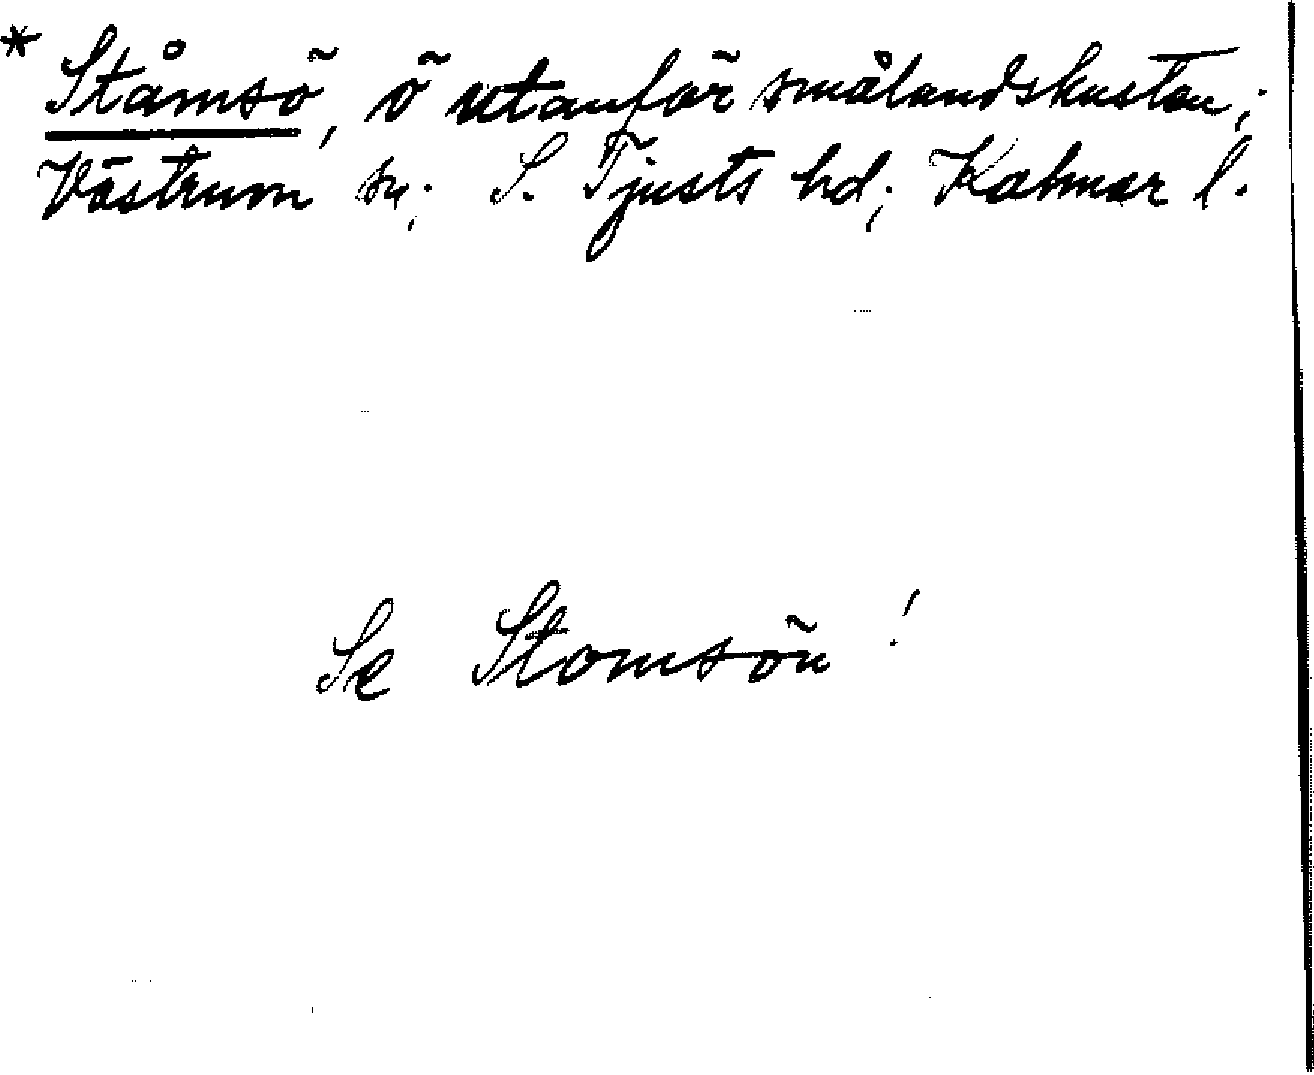 * Ståmsö, ö utanför smålandskusten;
Västrum sn; S. Tjusts hd; Kalmar l.
Se Stomsön!